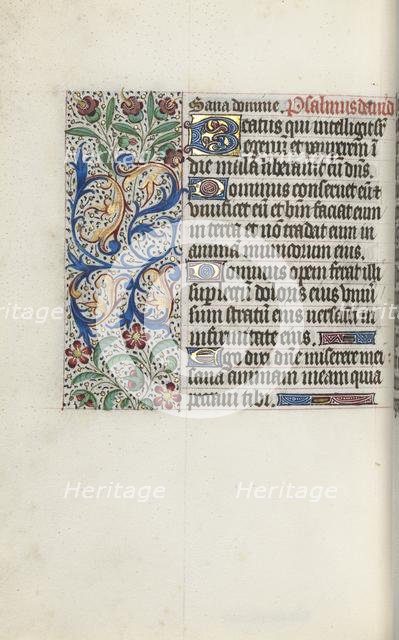 Sana domine. Psalmus david
Beatus qui intelligit sr̄
egenū et pauperem ī
die mala liberabit eū dn̄s.
Dominus conservet eū et
vivificet eū et btm̄ faciat eum
in terra et non tradat eum in
animā inimicorum eius.
Dominus opem ferat illi
sup lectū doloris eius univ̄
sum stratū eius versasti in
infirmitate eius.
Ego dixi dn̄e miserere mei
sana animam meam quia
peccavi tibi.
Heritage Heritage
Heritage Heritage
Heritage Heritage